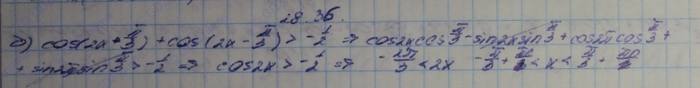 28.36.
б) cos(2x + π/3) + cos(2x - π/3) > -1/2 ⇒ cos2x cos π/3 - sin2x sin π/3 + cos2x cos π/3 +
+ sin2x sin π/3 > -1/2 ⇒ cos2x > -1/2 ⇒ -2π/3 < 2x -π/3 + πn < x < π/3 + πn